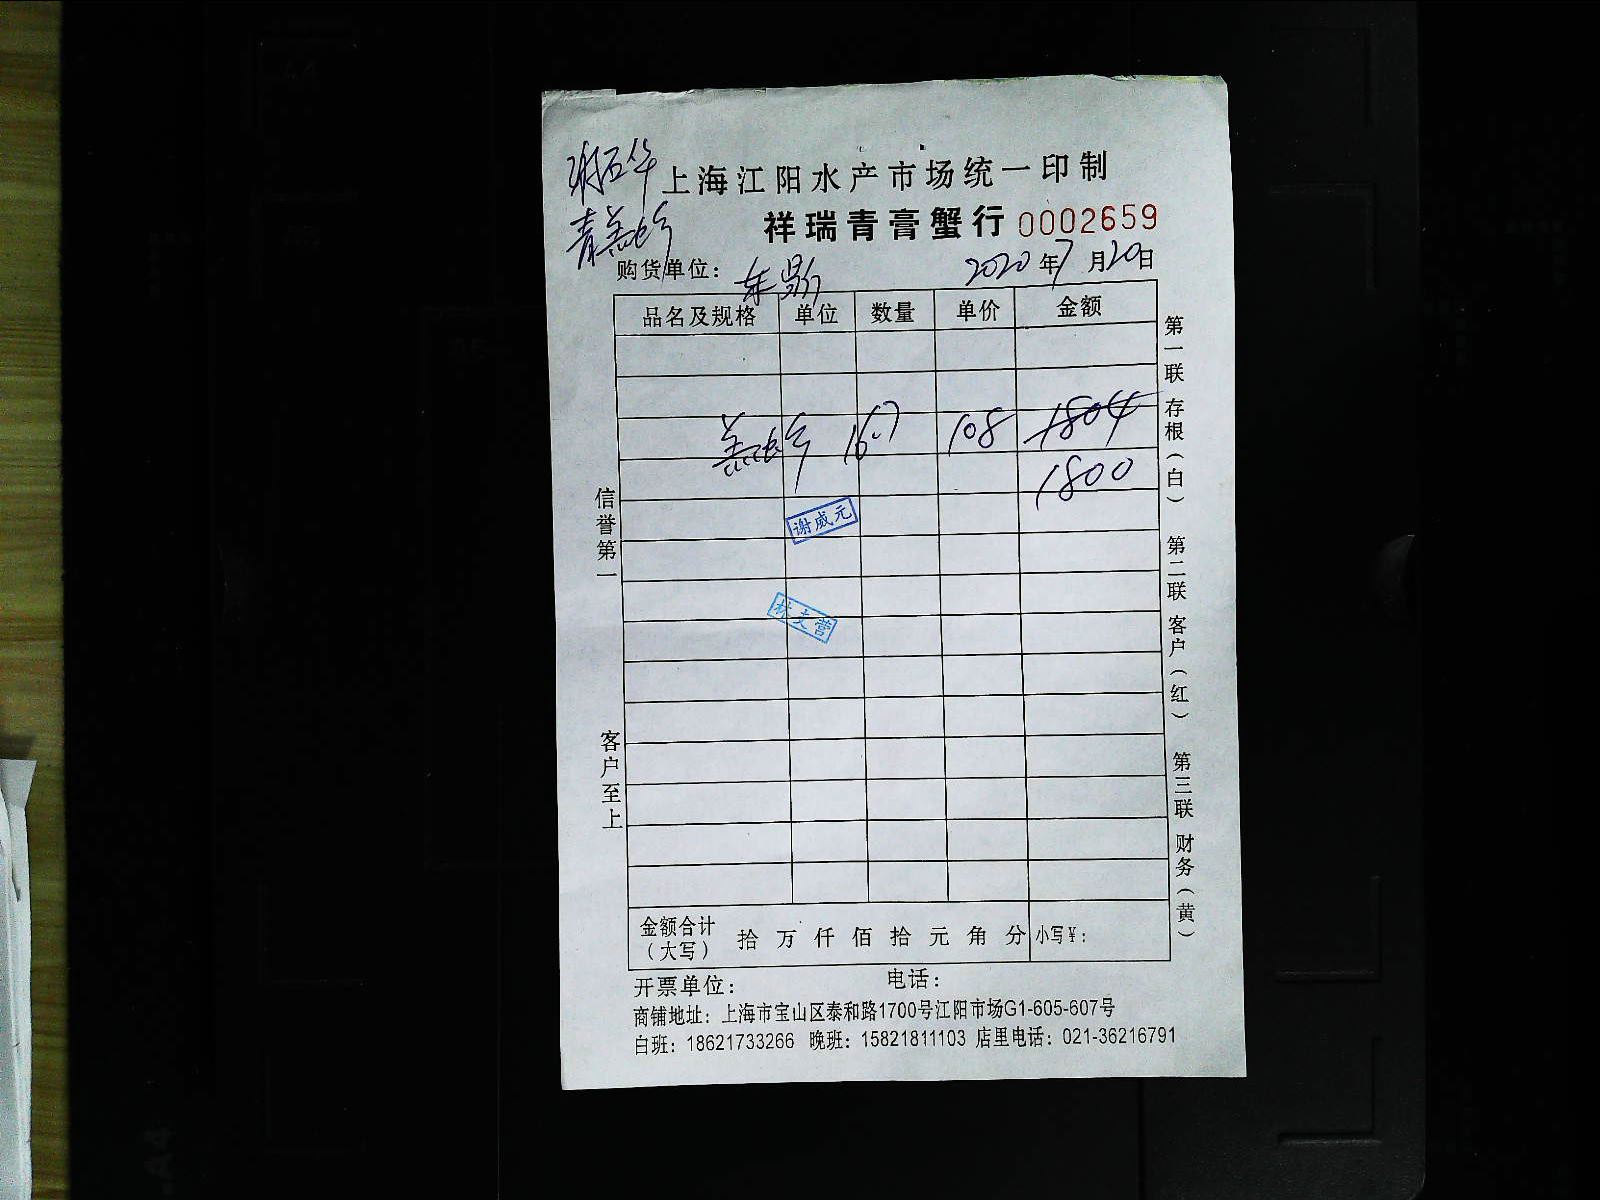 上海江阳水产市场统一印制
祥瑞青膏蟹行 0002659
购货单位： 2020年7月20日
品名及规格 单位 数量 单价 金额
16.7 108 1804
1800
谢威元
林文营
信誉第一
客户至上
第一联 存根（白） 第二联 客户（红） 第三联 财务（黄）
金额合计（大写） 拾 万 仟 佰 拾 元 角 分 小写¥：
开票单位： 电话：
商铺地址：上海市宝山区泰和路1700号江阳市场G1-605-607号
白班：18621733266 晚班：15821811103 店里电话：021-36216791